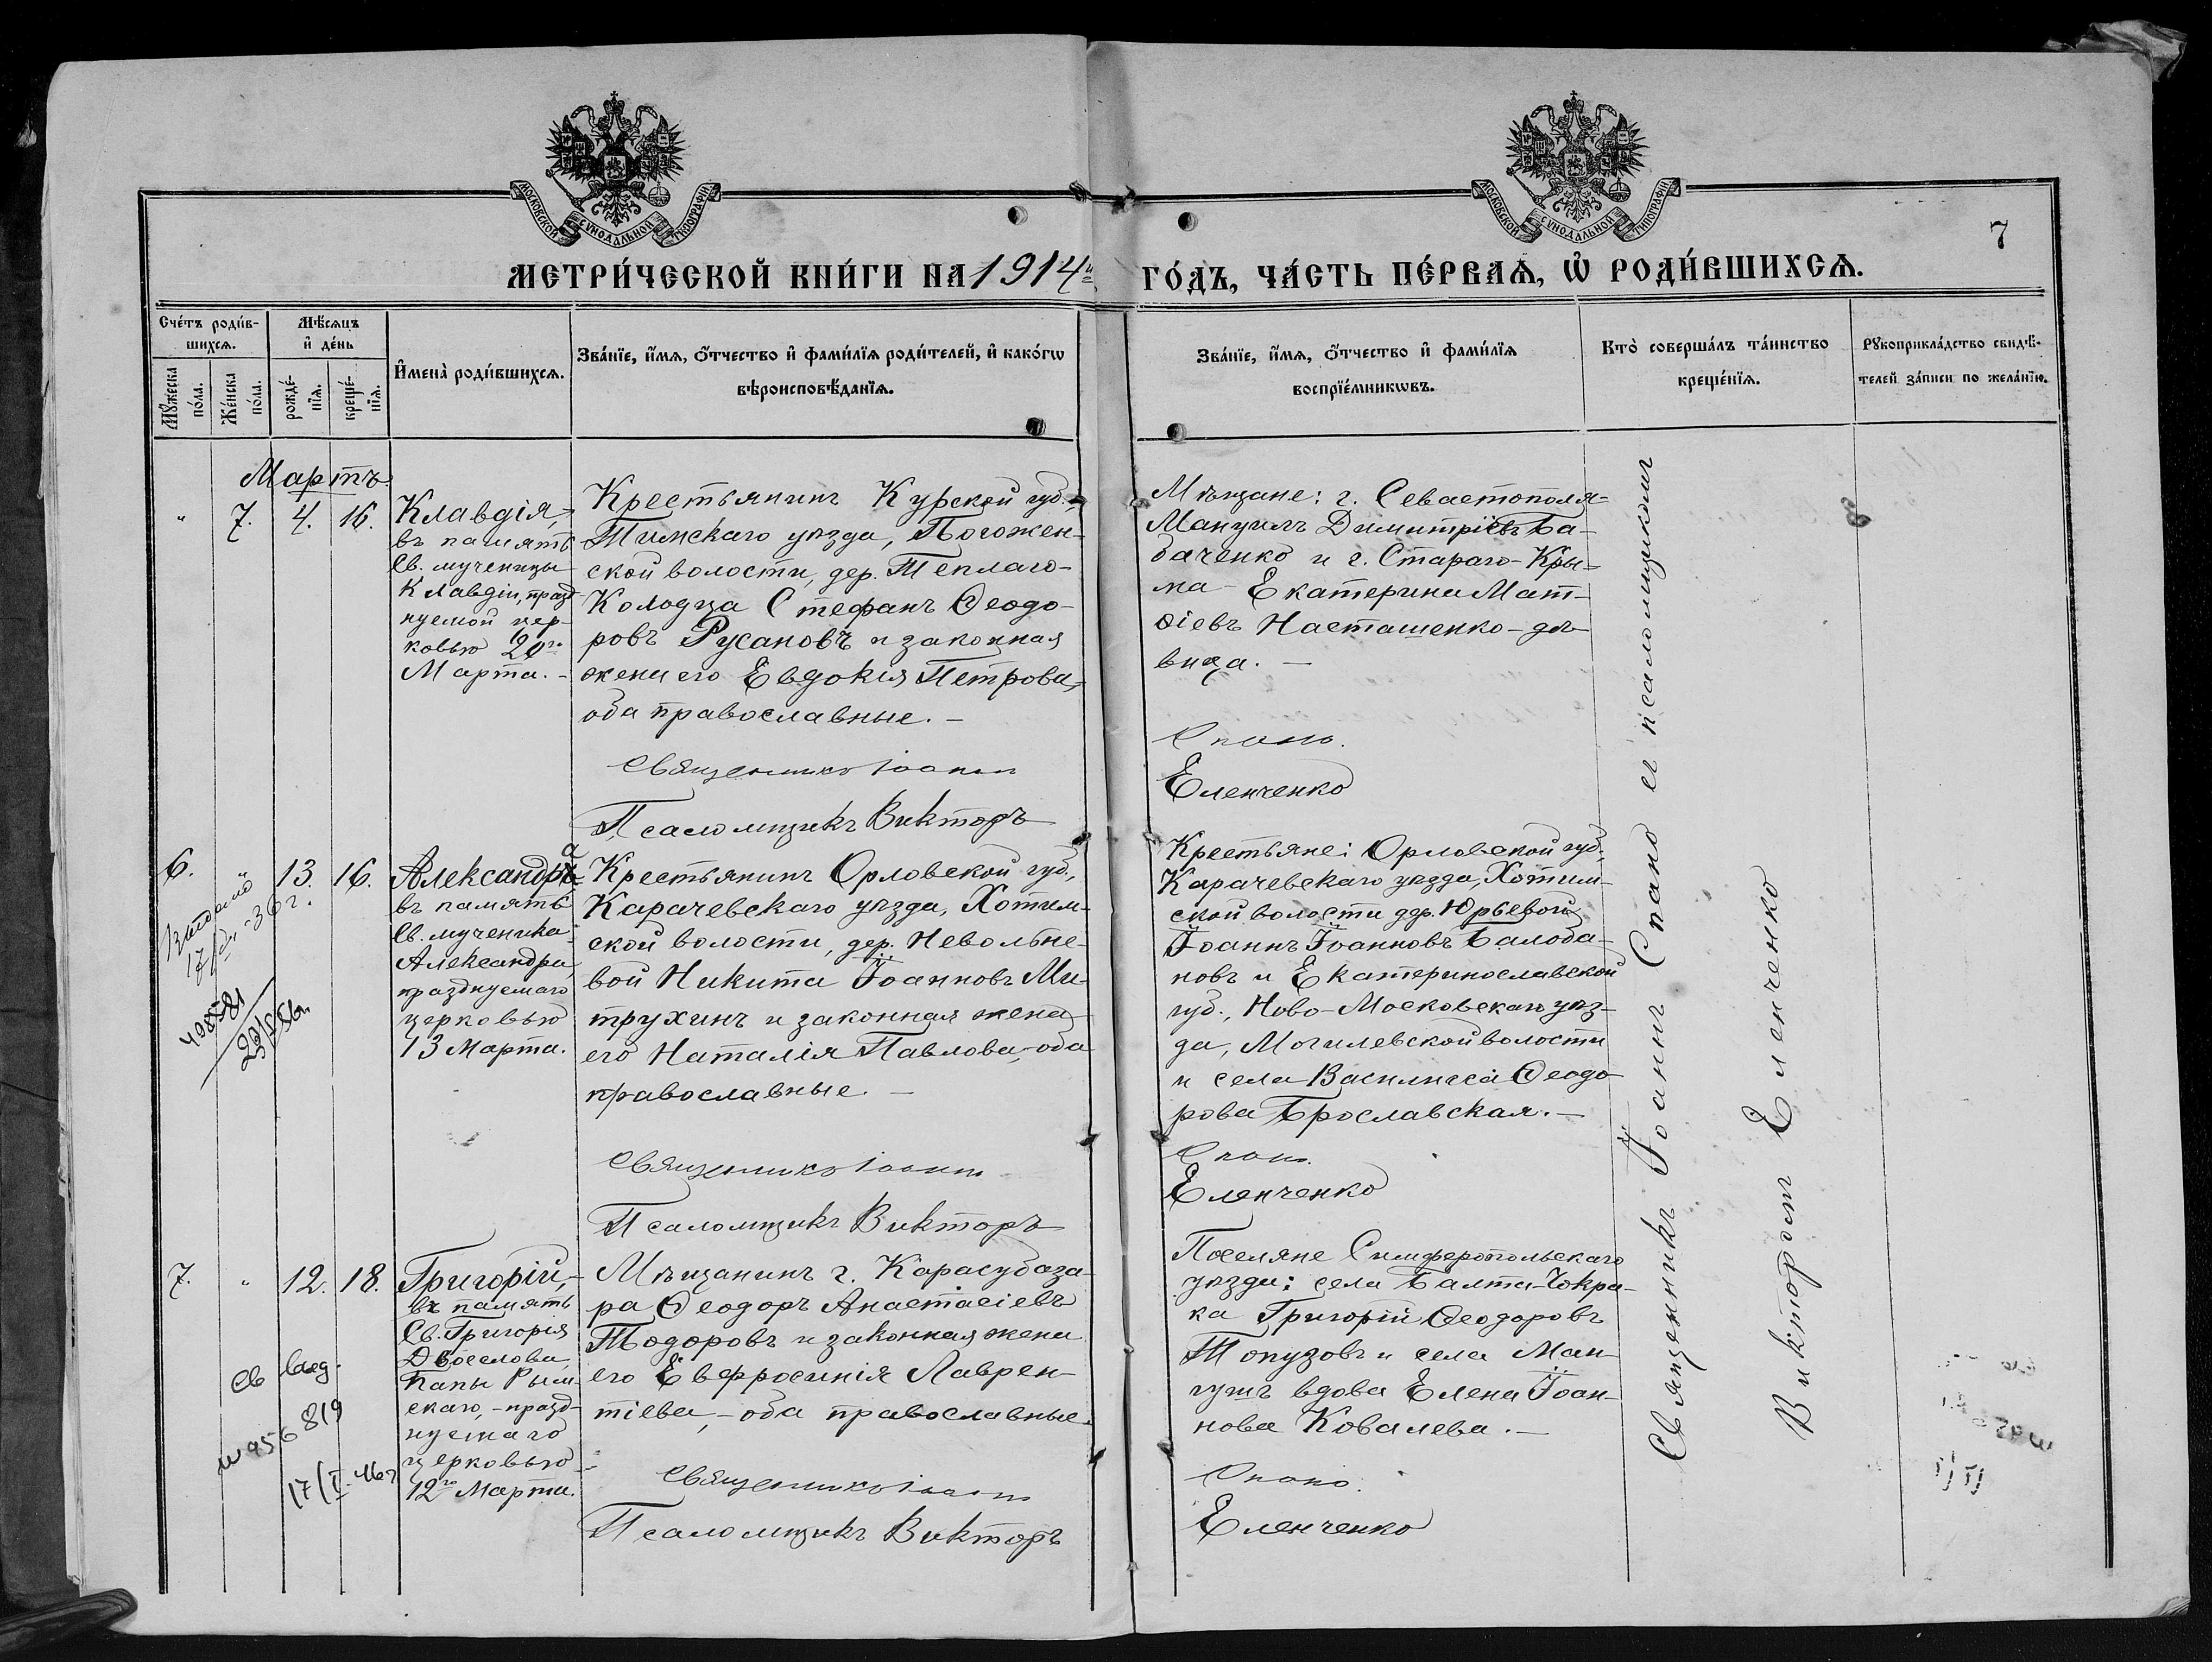 МОСКОВСКОЙ СѴНОДАЛЬНОЙ ТИПОГРАФІИ
МОСКОВСКОЙ СѴНОДАЛЬНОЙ ТИПОГРАФІИ
7
МЕТРИ́ЧЕСКОЙ КНИ́ГИ НА 1914й
ГО́ДЪ, ЧА́СТЬ ПЕ́РВАѦ, Ѡ҆ РОДИ́ВШИХСѦ.
Сче́тъ роди́в-
шихсѧ.
Мѣ́сѧцъ
и҆ де́нь
Мꙋ́жеска
по́ла.
Же́нска
по́ла.
рожде́-
нїѧ.
креще́-
нїѧ.
И҆мена̀ роди́вшихсѧ.
Зва́нїе, и҆́мѧ, ѻ҆́тчество и҆ фами́лїѧ роди́телей, и҆ како́гѡ
вѣроисповѣ́данїѧ.
Зва́нїе, и҆́мѧ, ѻ҆́тчество и҆ фами́лїѧ
воспрїе́мникѡвъ.
Кто̀ соверша́лъ та́инство
креще́нїѧ.
Рꙋкоприкла́дство свидѣ́-
телей за́писи по жела́нїю.
Мартъ
" 7. 4. 16.
Клавдія,
въ память
Св. мученицы
Клавдіи, празд-
нуемой цер-
ковью 20го
Марта. -
Крестьянинъ Курской губ.,
Тимскаго уѣзда, Погожен-
ской волости, дер. Теплаго-
Колодца Стефанъ Ѳеодо-
ровъ Русановъ и законная
жена его Евдокія Петрова,
оба православные. -
Священникъ Іоаннъ
Псаломщикъ Викторъ
Мѣщане: г. Севастополя-
Мануилъ Димитріевъ Ба-
баченко и г. Стараго-Кры-
ма - Екатерина Мат-
ѳіевъ Насташенко - дѣ-
вица. -
Спано.
Еленченко
6. " 13. 16.
Александръ а
въ память
Св. мученика
Александра,
празднуемаго
церковью
13 Марта.
Крестьянинъ Орловской губ.,
Карачевскаго уѣзда, Хотим-
ской волости, дер. Невольне-
вой Никита Іоанновъ Ми-
трухинъ и законная жена
его Наталія Павлова, - оба
православные. -
Священникъ Іоаннъ
Псаломщикъ Викторъ
Крестьяне: Орловской губ.,
Карачевскаго уѣзда, Хотим-
ской волости дер. Юрьевой
Іоаннъ Іоанновъ Балоба-
новъ и Екатеринославской
губ., Ново-Московскаго уѣз-
да, Могилевской волости
и села Василисса Ѳеодо-
рова Брославская. -
Спано.
Еленченко
7. " 12. 18.
Григорій, -
въ память
Св. Григорія
Двоеслова,
Папы Рим-
скаго, - празд-
нуемаго
церковью
12го Марта.
Св
819
17/I-46г
Мѣщанинъ г. Карасубаза-
ра Ѳеодоръ Анастасіевъ
Тодоровъ и законная жена
его Евфросинія Лаврен-
тіева, - оба православные.
Священникъ Іоаннъ
Псаломщикъ Викторъ
Поселяне Симферопольскаго
уѣзда: села Балта-Чокра-
ка Григорій Ѳеодоровъ
Топузовъ и села Ман-
гушъ вдова Елена Іоан-
нова Ковалева. -
Спано.
Еленченко
Священникъ Іоаннъ Спано съ псаломщикомъ
Викторомъ Еленченко